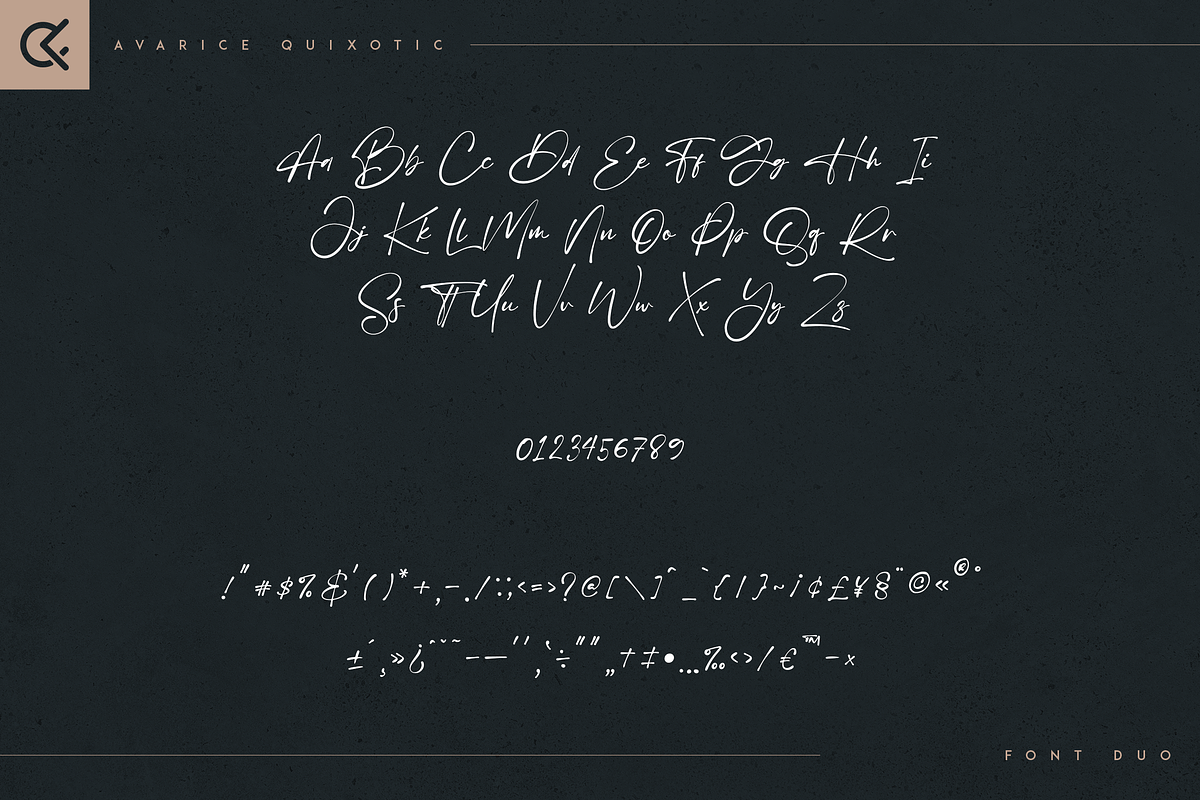 AVARICE QUIXOTIC
Aa Bb Cc Dd Ee Ff Gg Hh Ii
Jj Kk Ll Mm Nn Oo Pp Qq Rr
Ss Tt Uu Vv Ww Xx Yy Zz
0123456789
!"#$%&'()*+,-./:;<=>?@[\]^_`{|}~¡¢£¥§¨©«®°
±´¸»¿ˆˇ˘˜–—‘’‚‛÷“”„†‡•…‰‹›⁄€™−×
FONT DUO